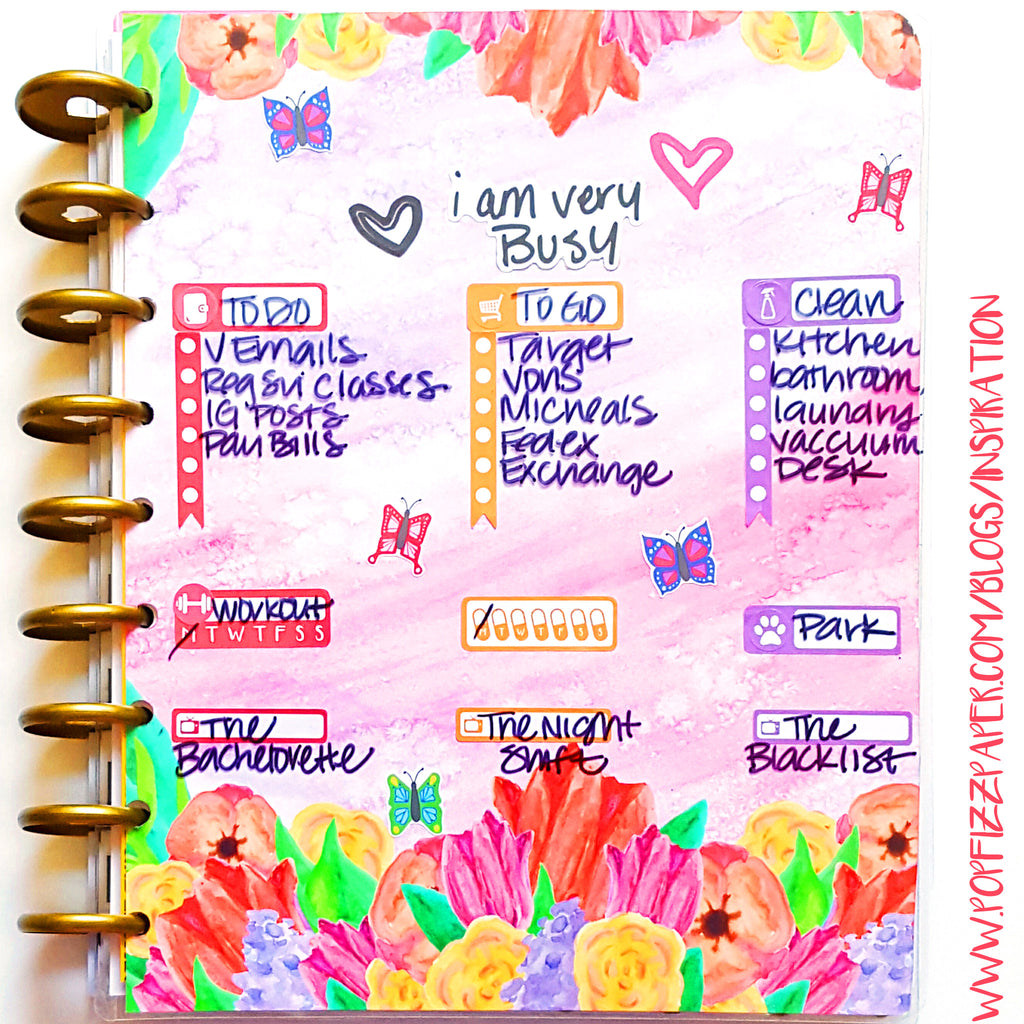 i am very
Busy
TO DO
V Emails
Reg Classes
IG Posts
Pay Bills
TO GO
Target
Vons
Micheals
Fedex
Exchange
Clean
Kitchen
bathroom
laundry
vaccuum
Desk
Workout
MTWTFSS
MTWTFSS
Park
The
Bachelorette
The Night
Shift
The
Blacklist
WWW.POPFIZZPAPER.COM/BLOGS/INSPIRATION